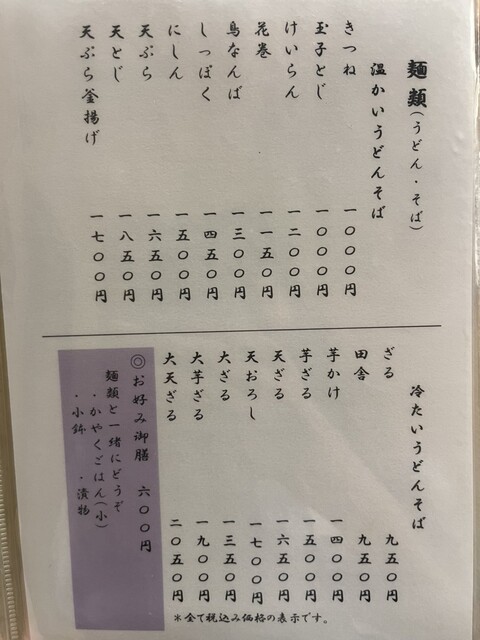 麺類(うどん・そば)
温かいうどんそば
きつね 一〇〇〇円
玉子とじ 一〇〇〇円
けいらん 一二〇〇円
花巻 一一五〇円
鳥なんば 一三〇〇円
しっぽく 一四五〇円
にしん 一五〇〇円
天ぷら 一六五〇円
天とじ 一八五〇円
天ぷら釜揚げ 一七〇〇円
冷たいうどんそば
ざる 九五〇円
田舎 九五〇円
芋かけ 一四〇〇円
芋ざる 一五〇〇円
天ざる 一六五〇円
天おろし 一七〇〇円
大ざる 一三五〇円
大芋ざる 一九〇〇円
大天ざる 二〇五〇円
◎お好み御膳 六〇〇円
麺類と一緒にどうぞ
・かやくごはん(小)
・小鉢 ・漬物
*全て税込み価格の表示です。